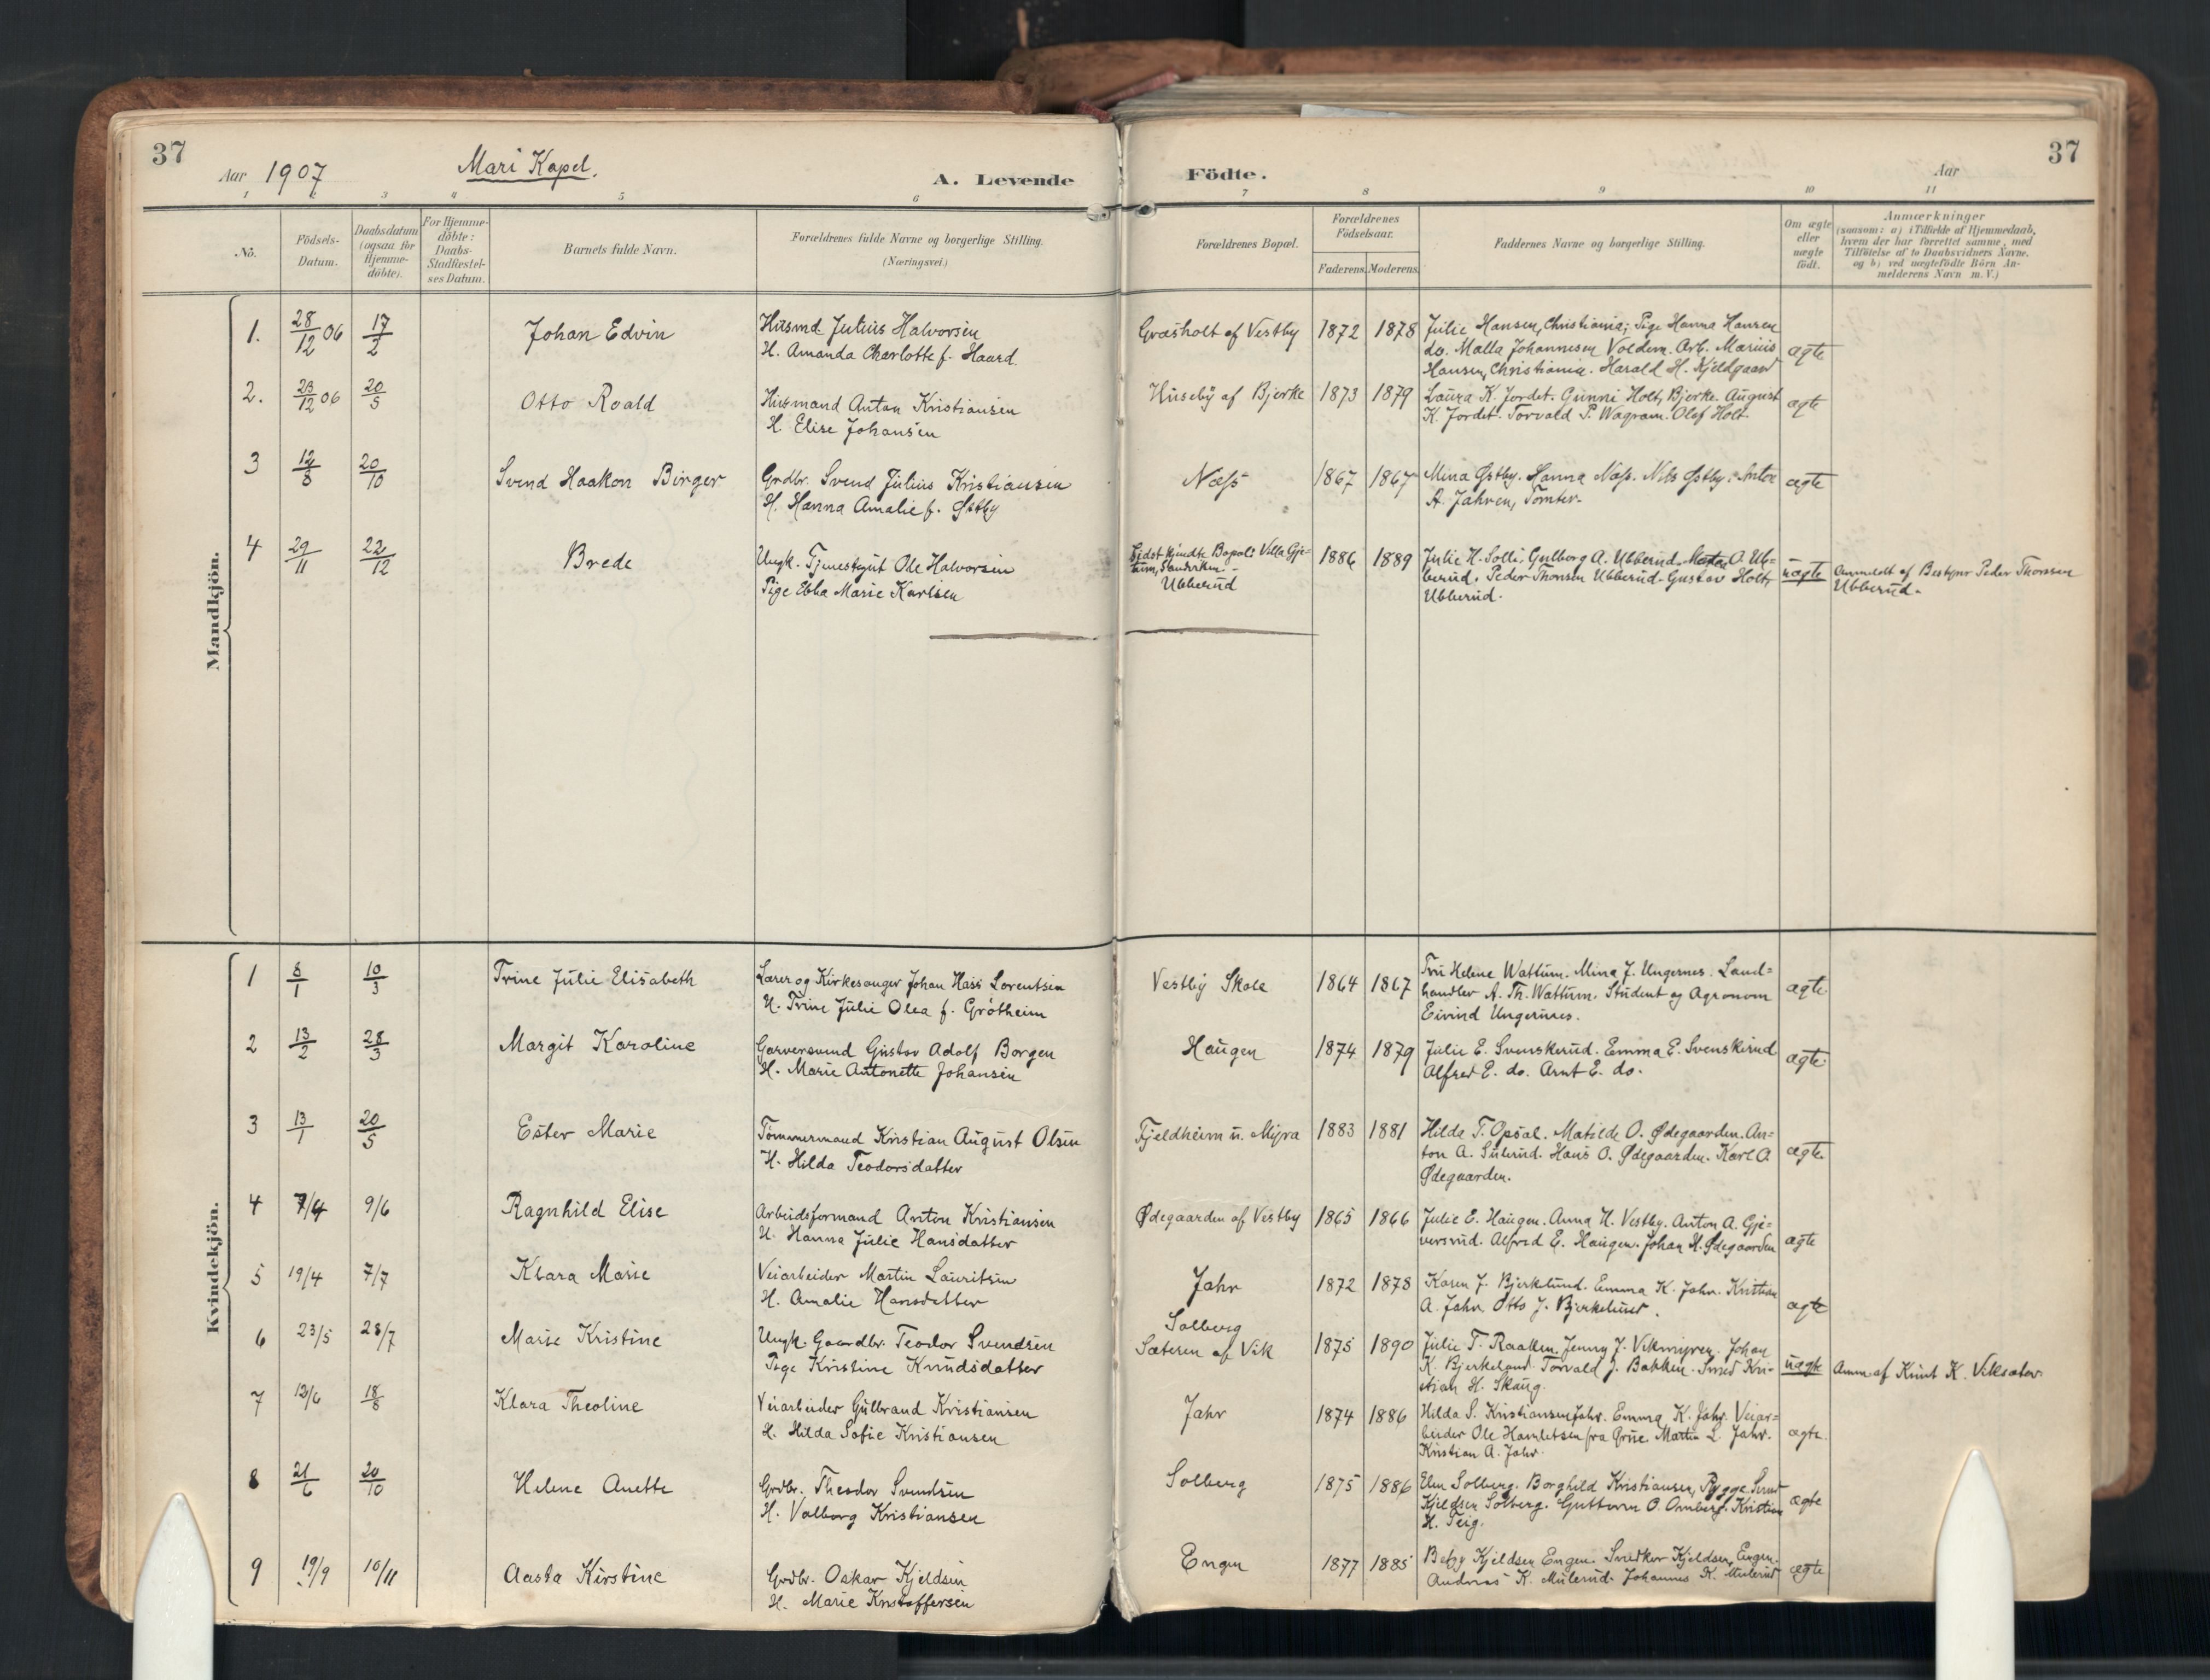 37
Aar 1907
Mari Kapel.
A. Levende
Födte.
Aar
37
1 2 3 4 5 6 7 8 9 10 11
No.
Födsels-
Datum.
Daabsdatum
(ogsaa for
Hjemme-
döbte).
For Hjemme-
döbte:
Daabs-
Stadfæstel-
ses Datum.
Barnets fulde Navn.
Forældrenes fulde Navne og borgerlige Stilling.
(Næringsvei.)
Forældrenes Bopæl.
Forældrenes
Födselsaar.
Faderens. Moderens.
Faddernes Navne og borgerlige Stilling.
Om ægte
eller
uægte
födt.
Anmærkninger
(saasom: a) i Tilfælde af Hjemmedaab,
hvem der har forrettet samme, med
Tilföielse af to Daabsvidners Navne,
og b) ved uægtefödte Börn An-
melderens Navn m. V.)
Mandkjön.
1. 28/12 06 17/2 Johan Edvin Husmd Julius Halvorsen Græsholt af Vestby 1872 1878 Julie Hansen, Christiania; Pige Hanna Hansen
H. Amanda Charlotte f. Haard. do. Malla Johannesen Voldem. Arb. Marius ægte
Hansen, Christiania. Harald H. Kjeldgaard
2. 23/12 06 20/5 Otto Roald Husmand Anton Kristiansen Huseby af Bjerke 1873 1879 Laura K. Jordet. Gunni Holt, Bjerke. August ægte
H. Elise Johansen K. Jordet. Torvald P. Wagram. Olof Holt.
3 12/8 20/10 Svend Haakon Birger Grdbr. Svend Julius Kristiansen Næss 1867 1867 Mina Østby. Hanna Næss. Nils Østby. Anton ægte
H. Hanna Amalie f. Østby A. Jahren, Tomter.
4 29/11 22/12 Brede Ungk. Tjenestegut Ole Halvorsen Sidst kjendte Bopæl: Villa Gje- 1886 1889 Julie H. Solli. Gulborg A. Ubberud. O. Ub- uægte Anmeldt af Bestyrer Peder Thorssen
Pige Ebba Marie Karlsen tum, Sandviken.- berud. Peder Thorsen Ubberud. Gustav Holt, Ubberud.
Ubberud Ubberud.
Kvindekjön.
1 8/1 10/3 Trine Julie Elisabeth Lærer og Kirkesanger Johan Hass Lorentsen Vestby Skole 1864 1867 Fru Helene Wattum. Mina J. Ungernes. Land= ægte
H. Trine Julie Olea f. Grøtheim handler A. Th. Wattum. Student og Agronom
Eivind Ungernes.
2 13/2 28/3 Margit Karoline Garversvend Gustav Adolf Borgen Haugen 1874 1879 Julie E. Svenskerud. Emma E. Svenskerud ægte
H. Marie Antonette Johansen Alfred E. do. Arnt E. do.
3 13/1 20/5 Ester Marie Tømmermand Kristian August Olsen Fjeldheim u. Myra 1883 1881 Hilda T. Opsal. Matilde O. Ødegaarden. An= ægte
H. Hilda Teodorsdatter ton A. Sulerud. Hans O. Ødegaarden. Karl O
Ødegaarden.
4 7/4 9/6 Ragnhild Elise Arbeidsformand Anton Kristiansen Ødegaarden af Vestby 1865 1866 Julie E. Haugen. Anna H. Vestby. Anton A. Gje= ægte
H. Hanna Julie Hansdatter versrud. Alfred E. Haugen. Johan H. Ødegaarden
5 19/4 7/7 Klara Marie Veiarbeider Martin Lauritsen Jahr 1872 1878 Karen J. Bjerkelund. Emma K. Jahr. Kristian ægte
H. Amalie Hansdatter A. Jahr, Otto J. Bjerkelund.
6 23/5 28/7 Marie Kristine Ungk. Gaardbr. Teodor Svendsen Solberg 1875 1890 Julie T. Raaken. Jenny J. Vikmyren. Johan uægte Anm. af Knut K. Viksæter
Pige Kristine Knudsdatter Sæteren af Vik K. Bjerkelund. Torvald J. Bakken. Smed Kri-
stian H. Skaug.
7 12/6 18/8 Klara Theoline Veiarbeider Gulbrand Kristiansen Jahr 1874 1886 Hilda S. Kristiansen Jahr. Emma K. Jahr. Veiar= ægte
H. Hilda Sofie Kristiansen beider Ole Hamletsen fra Grue. Martin L. Jahr.
Kristian A. Jahr.
8 21/6 20/10 Helene Anette Grdbr. Theodor Svendsen Solberg 1875 1886 Elen Solberg. Borghild Kristiansen, Rygge. Svend ægte
H. Valborg Kristiansen Kjeldsen Solberg. Guttorm O. Omberg. Kristian
H. Teig.
9 19/9 10/11 Aasta Kirstine Grdbr. Oskar Kjeldsen Engen 1877 1885 Betzy Kjeldsen Engen. Snedker Kjeldsen, Engen. ægte
H. Marie Kristoffersen Andreas K. Mulerud. Johannes K. Mulerud